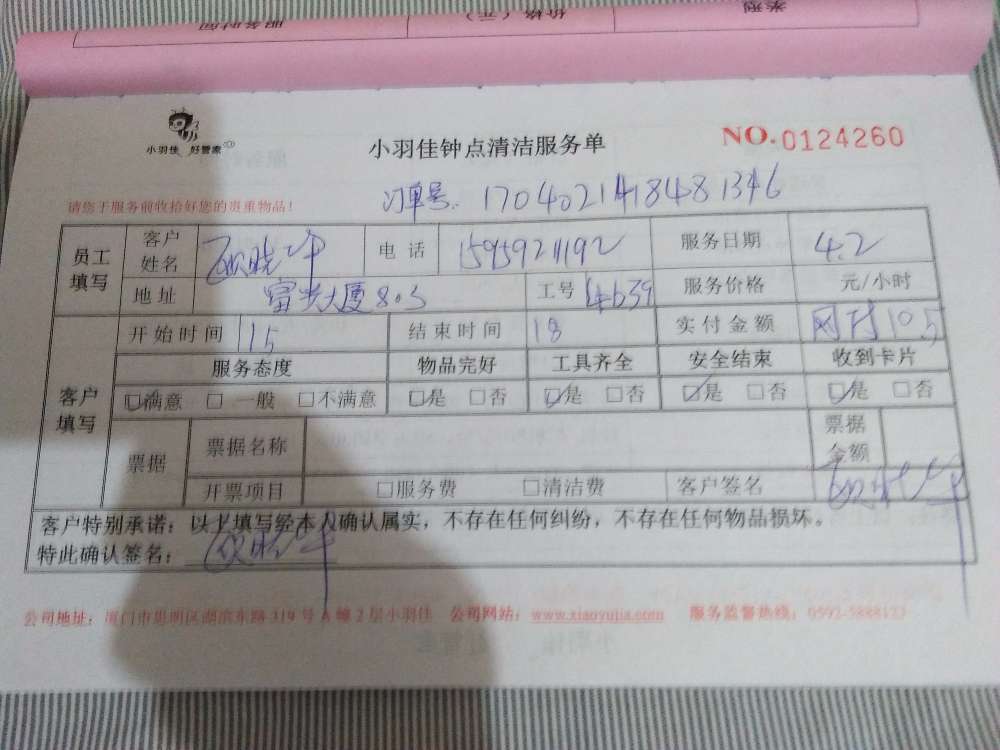 类别
价格（元）
服务时间
小羽佳 好管家
小羽佳钟点清洁服务单
NO.0124260
订单号. 1704021418481346
请您于服务前收拾好您的贵重物品！
员工填写
客户姓名
电话 15959211192
服务日期 4.2
地址 富兴大厦803
工号 4639
服务价格 元/小时
客户填写
开始时间 15
结束时间 18
实付金额 网付105
服务态度 物品完好 工具齐全 安全结束 收到卡片
☑满意 □一般 □不满意 ☑是 □否 ☑是 □否 ☑是 □否 ☑是 □否
票据
票据名称
票据金额
开票项目 □服务费 □清洁费 客户签名
客户特别承诺：以上填写经本人确认属实，不存在任何纠纷，不存在任何物品损坏。
特此确认签名：
公司地址：厦门市思明区湖滨东路319号A幢2层小羽佳 公司网站：www.xiaoyujia.com 服务监督热线：0592-5888123